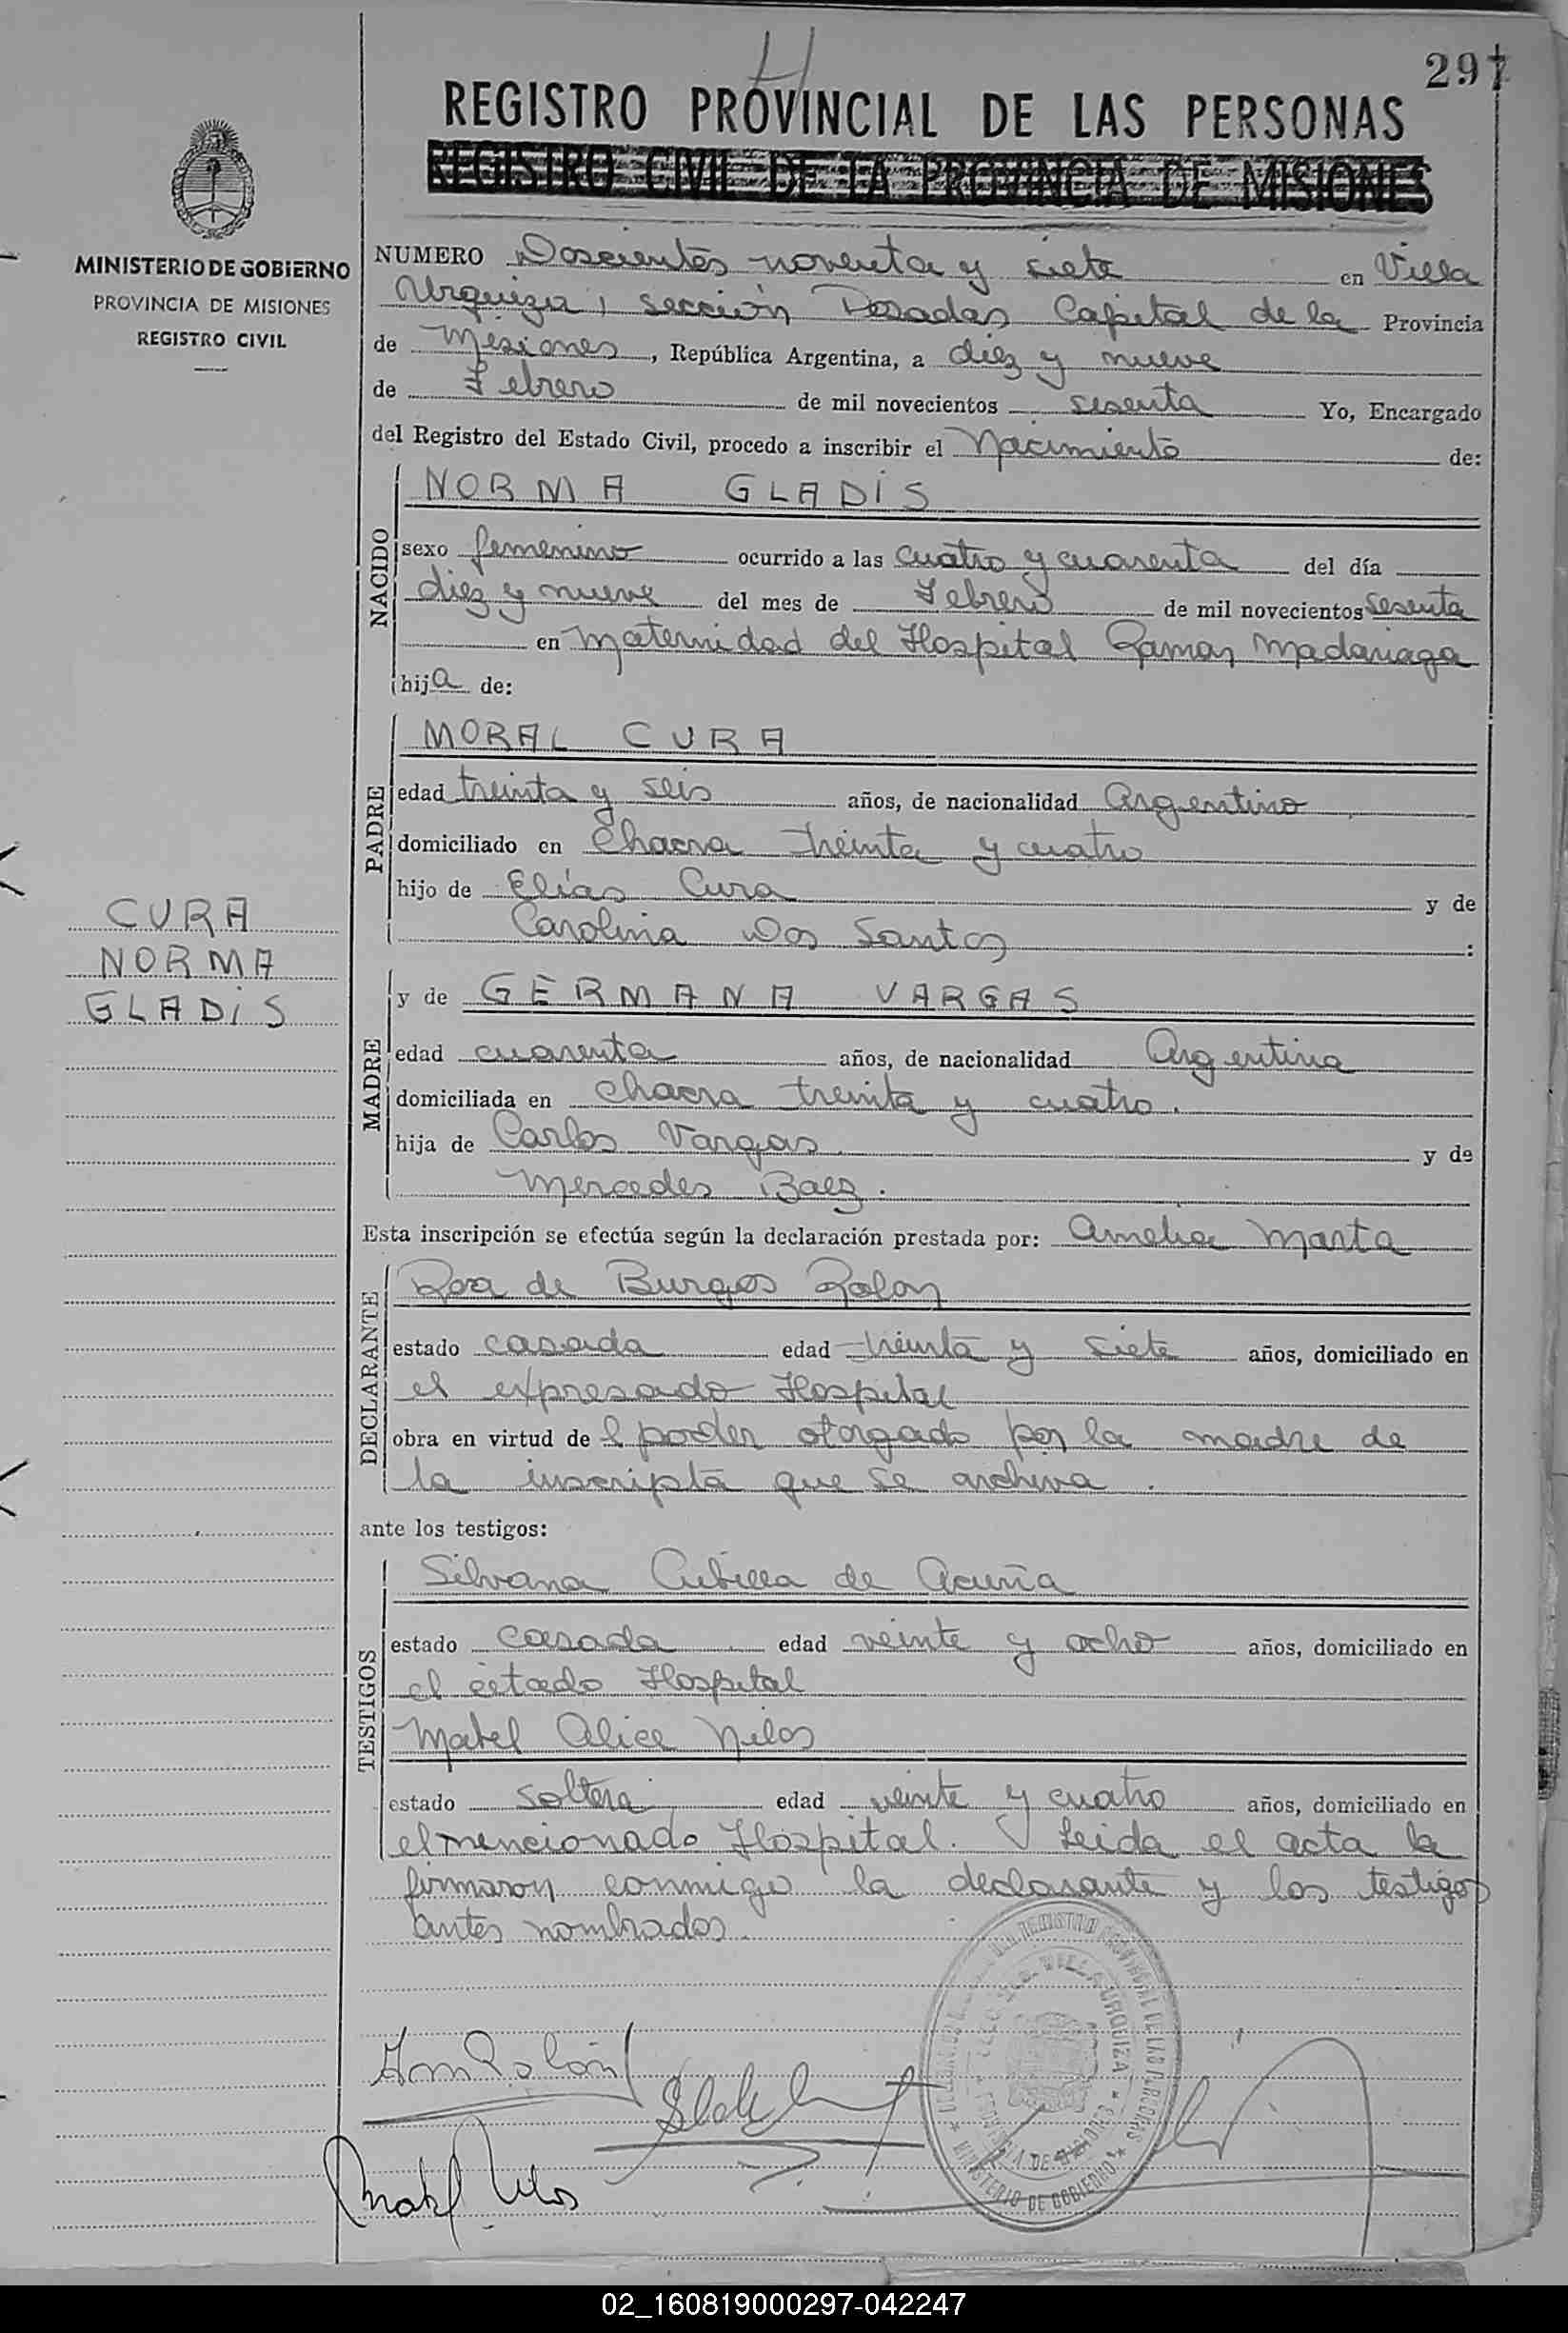 297
REGISTRO PROVINCIAL DE LAS PERSONAS
REGISTRO CIVIL DE LA PROVINCIA DE MISIONES
MINISTERIO DE GOBIERNO
PROVINCIA DE MISIONES
REGISTRO CIVIL
NUMERO Doscientos noventa y siete en Villa
Urquiza, sección Posadas Capital de la Provincia
de Misiones, República Argentina, a diez y nueve
de Febrero de mil novecientos sesenta Yo, Encargado
del Registro del Estado Civil, procedo a inscribir el Nacimiento de:
NACIDO
NORMA GLADIS
sexo femenino ocurrido a las cuatro y cuarenta del día
diez y nueve del mes de Febrero de mil novecientos sesenta
en Maternidad del Hospital Ramon Madariaga
hija de:
PADRE
MORAL CURA
edad treinta y seis años, de nacionalidad Argentino
domiciliado en Chacra treinta y cuatro
hijo de Elías Cura y de
Carolina Dos Santos :
CURA
NORMA
GLADIS
MADRE
y de GERMANA VARGAS
edad cuarenta años, de nacionalidad Argentina
domiciliada en Chacra treinta y cuatro.
hija de Carlos Vargas y de
Mercedes Baez.
Esta inscripción se efectúa según la declaración prestada por: Amelia Marta
DECLARANTE
Roa de Burgos Rolon
estado casada edad treinta y siete años, domiciliado en
el expresado Hospital
obra en virtud de l poder otorgado por la madre de
la inscripta que se archiva.
ante los testigos:
TESTIGOS
Silvana Cubilla de Acuña
estado casada edad veinte y ocho años, domiciliado en
el citado Hospital
Mabel Alice Nilos
estado soltera edad veinte y cuatro años, domiciliado en
el mencionado Hospital. Leida el acta la
firmaron conmigo la declarante y los testigos
antes nombrados.
DEL REGISTRO PROVINCIAL DE LAS PERSONAS
VILLA URQUIZA
PROVINCIA DE MISIONES
MINISTERIO DE GOBIERNO
Mabel Nilos
02_160819000297-042247